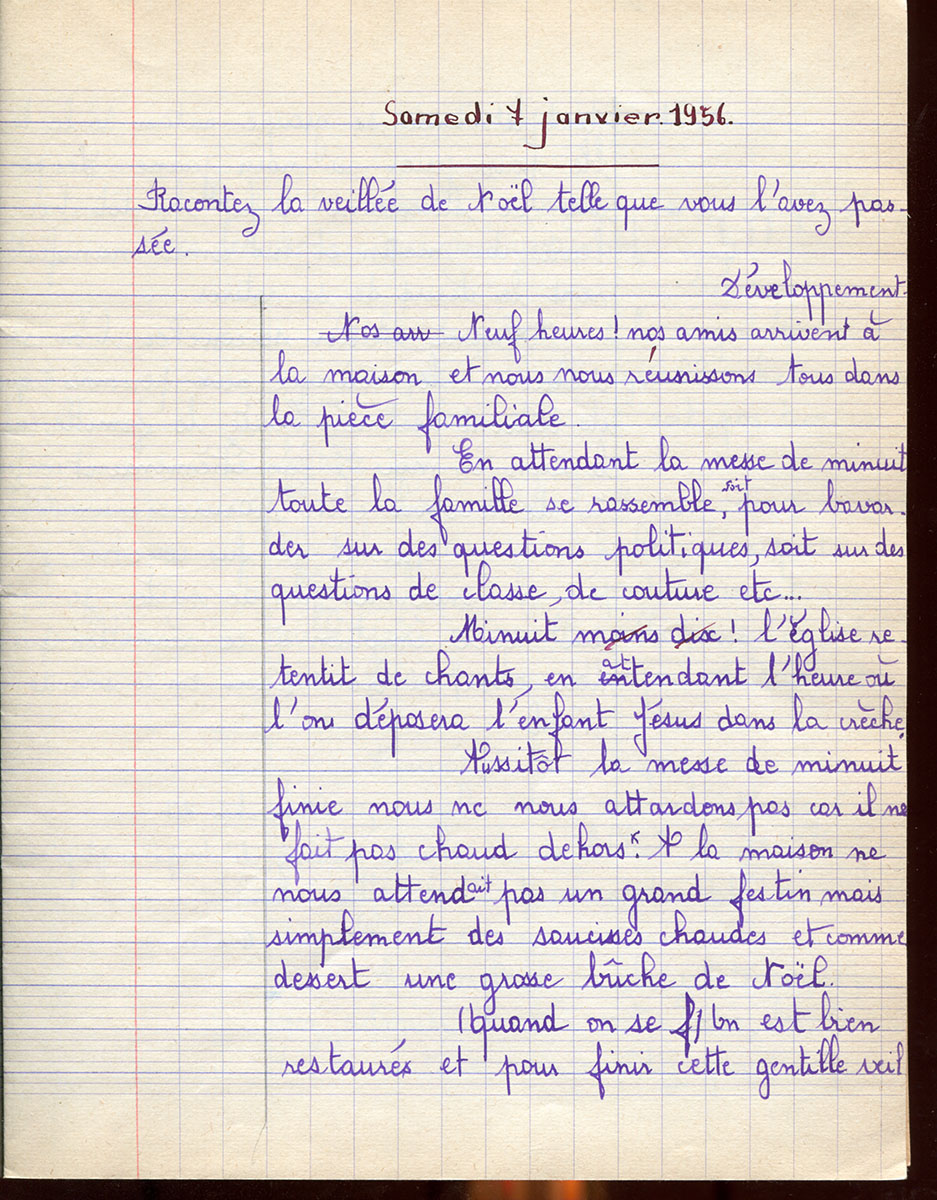 Samedi 7 janvier 1956.
Racontez la veillée de Noël telle que vous l'avez pas-
sée.
Développement.
Nos arr Neuf heures ! nos amis arrivent à
la maison et nous nous réunissons tous dans
la pièce familiale.
En attendant la messe de minuit
toute la famille se rassemble, soit pour bavar-
der sur des questions politiques, soit sur des
questions de classe, de couture etc...
Minuit moins dix ! l'Église re-
tentit de chants, en attendant l'heure où
l'on déposera l'enfant Jésus dans la crèche.
Aussitôt la messe de minuit
finie nous ne nous attardons pas car il ne
fait pas chaud dehors. A la maison ne
nous attendait pas un grand festin mais
simplement des saucisses chaudes et comme
desert une grosse bûche de Noël.
(quand on se f) On est bien
restaurés et pour finir cette gentille veil